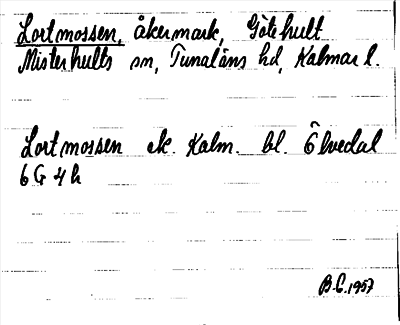 Lortmossen, åkermark, Götehult
Misterhults sn, Tunaläns hd, Kalmar l.
Lortmossen ek. Kalm. bl. Ölvedal
6 G 4 h
B.E. 1957